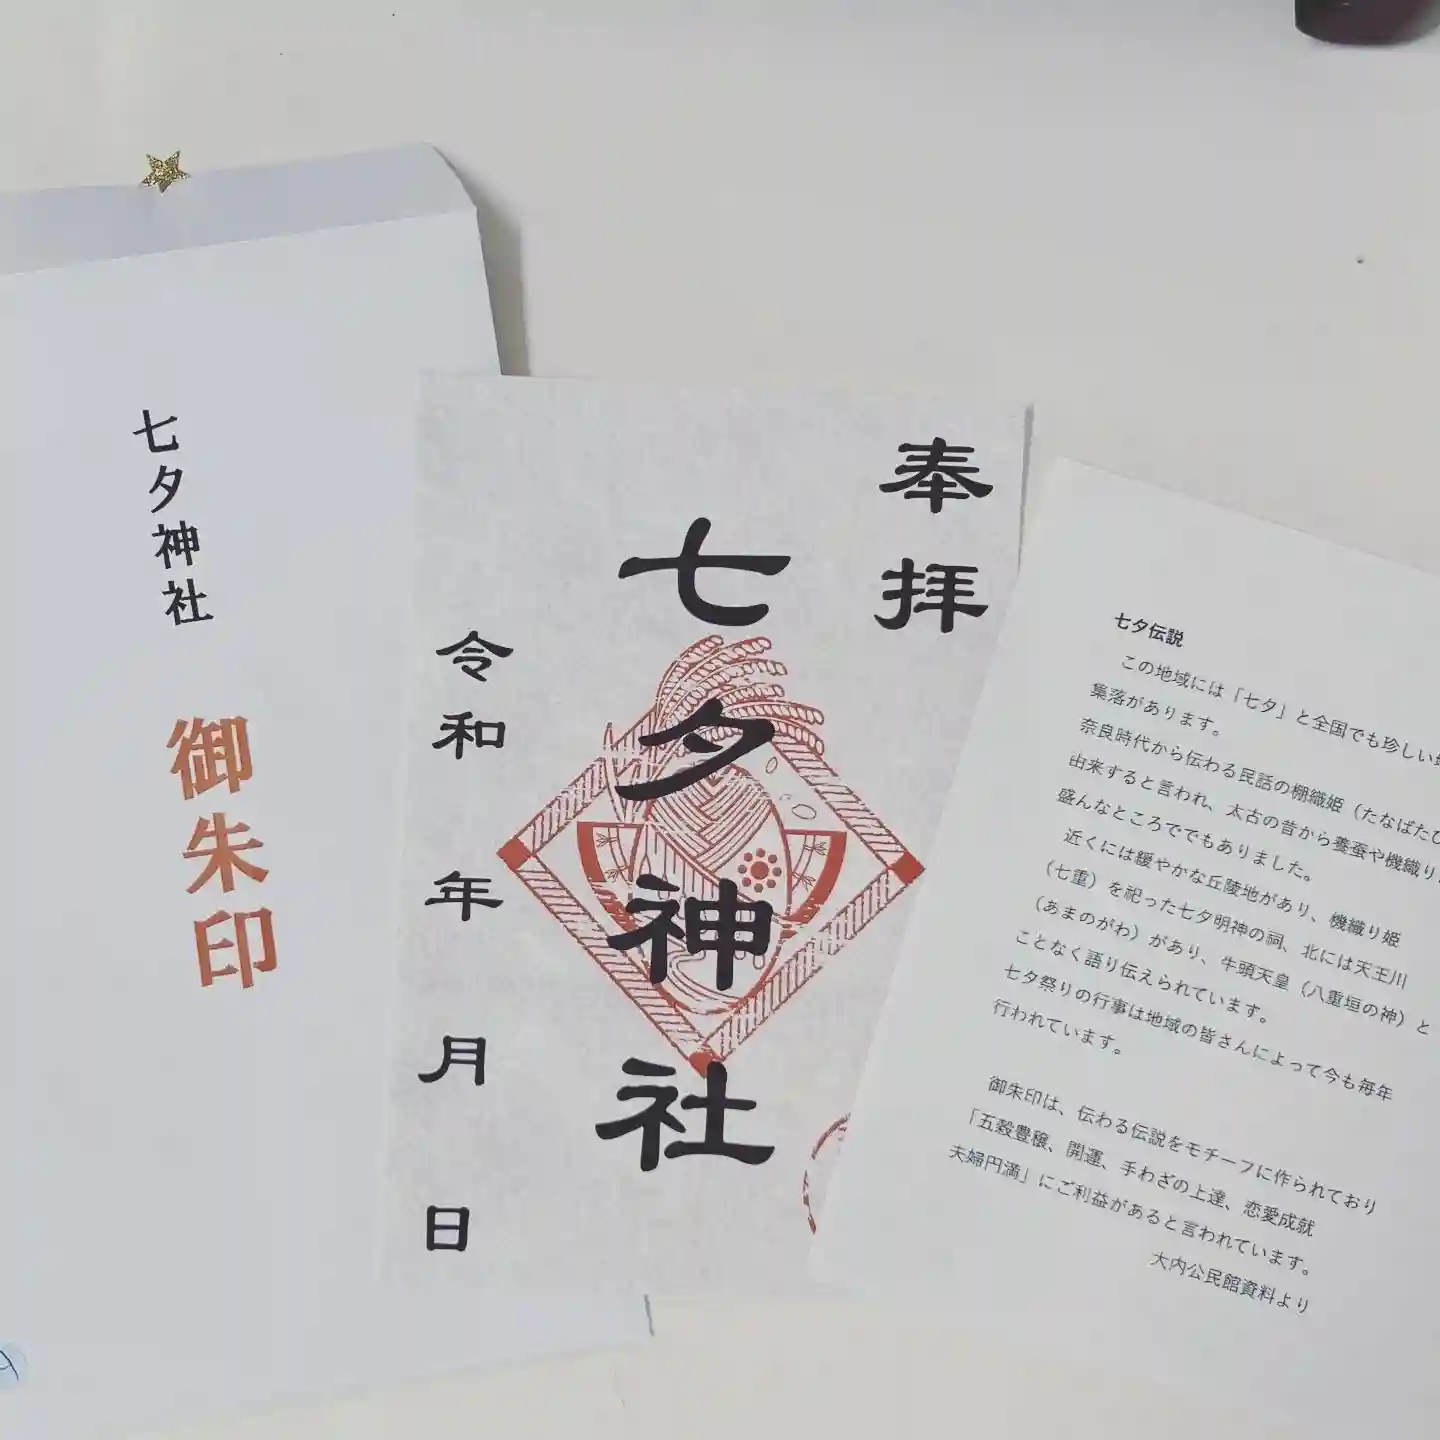 七夕神社
御朱印
奉拝
七夕神社
令和 年 月 日
七夕伝説
この地域には「七夕」と全国でも珍しい
集落があります。
奈良時代から伝わる民話の棚織姫（たなばたひ
由来すると言われ、太古の昔から養蚕や機織り
盛んなところででもありました。
近くには緩やかな丘陵地があり、機織り姫
（七重）を祀った七夕明神の祠、北には天王川
（あまのがわ）があり、牛頭天皇（八重垣の神）と
ことなく語り伝えられています。
七夕祭りの行事は地域の皆さんによって今も毎年
行われています。
御朱印は、伝わる伝説をモチーフに作られており
「五穀豊穣、開運、手わざの上達、恋愛成就
夫婦円満」にご利益があると言われています。
大内公民館資料より